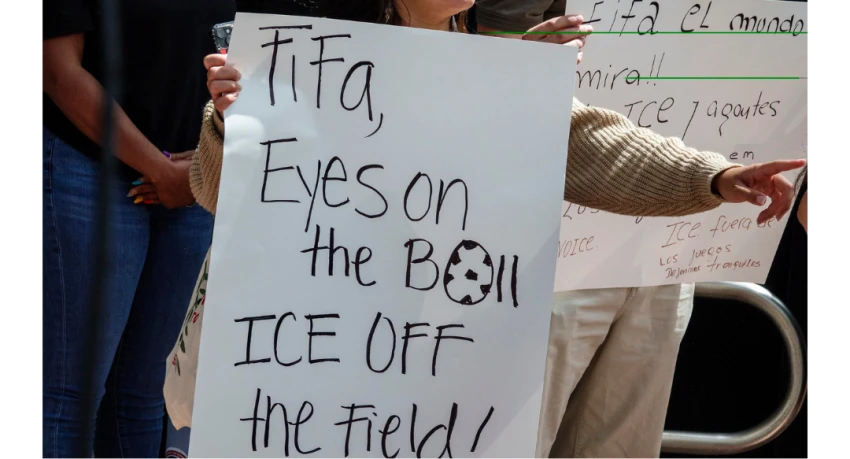 FiFa,
Eyes on
the Ball
ICE OFF
the Field!
FiFa el mundo
mira!!
ICE y agentes
em
ICE fuera de
VOICE.
Los juegos
Dejennos tranquilos